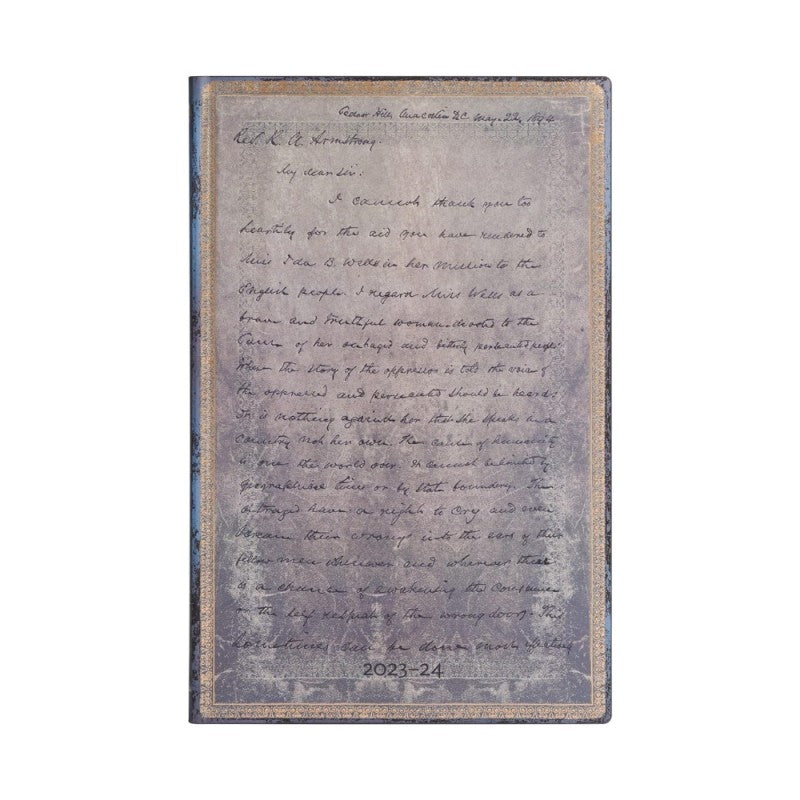 Cedar Hill, Anacostia D.C. May. 22, 1894
Rev. R. A. Armstrong.
My dear Sir:
I cannot thank you too
heartily for the aid you have rendered to
Miss Ida B. Wells in her mission to the
English people. I regard Miss Wells as a
brave and truthful woman devoted to the
cause of her outraged and bitterly persecuted people
When the story of the oppressor is told the voice of
the oppressed and persecuted should be heard
It is nothing against her that she speaks in a
country not her own. The cause of humanity
is one the world over. It cannot be limited by
geographical lines or by State boundary. The
outraged have a right to cry and even
scream their wrongs into the ears of their
fellow men whenever and wherever there
is a chance of awakening the conscience
or the self respect of the wrong doers. This
sometimes can be done most effectively
2023–24